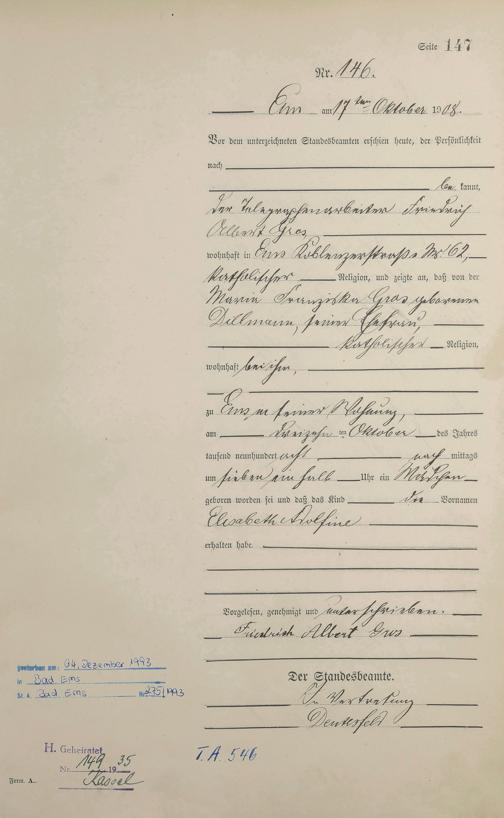 Seite 147
Nr. 146.
Ems am 17ten Oktober 1908.
Vor dem unterzeichneten Standesbeamten erschien heute, der Persönlichkeit
nach
be kannt,
der Telegraphenarbeiter Friedrich
Albert Gros
wohnhaft in Ems Koblenzerstraße Nr 62,
katholischer Religion, und zeigte an, daß von der
Maria Franziska Gros geborenen
Dillmann, seiner Ehefrau,
katholischer Religion,
wohnhaft bei ihm,
zu Ems in seiner Wohnung,
am dreizehnten Oktober des Jahres
tausend neunhundert acht nach mittags
um sieben ein halb Uhr ein Mädchen
geboren worden sei und daß das Kind die Vornamen
Elisabeth Adolfine
erhalten habe.
Vorgelesen, genehmigt und unterschrieben.
Friedrich Albert Gros
Der Standesbeamte.
In Vertretung
gestorben am: 04. Dezember 1993
in Bad Ems
St. A. Bad Ems Nr. 235/1993
H. Geheiratet
Nr. 149 1935
Kassel
T. A. 546
Form. A.